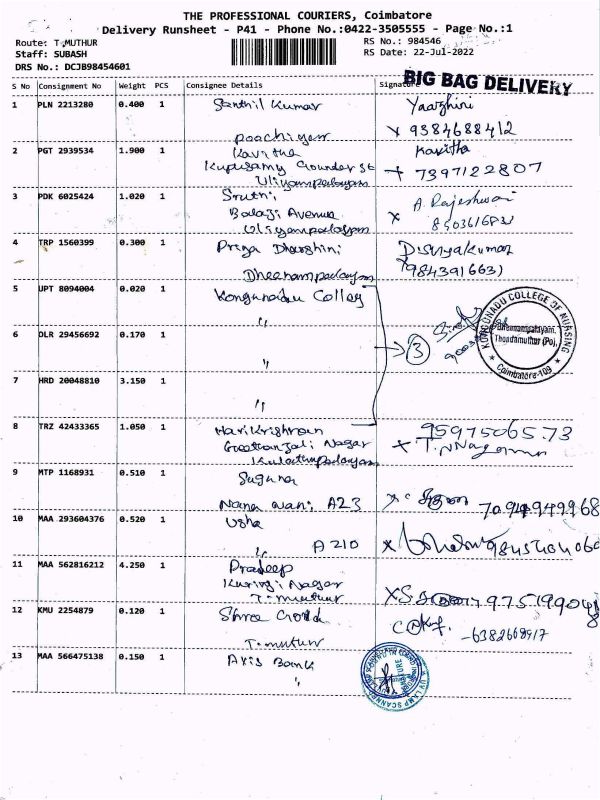 THE PROFESSIONAL COURIERS, Coimbatore
Delivery Runsheet - P41 - Phone No.:0422-3505555 - Page No.:1
Route: T.MUTHUR
Staff: SUBASH
DRS No.: DCJB98454601
RS No.: 984546
RS Date: 22-Jul-2022
BIG BAG DELIVERY
S No Consignment No Weight PCS Consignee Details Signature
1 PLN 2213280 0.400 1 Senthil Kumar Yaazhini
poochiyur 9384688412
2 PGT 2939534 1.900 1 Kavitha Kavitha
Kupusamy Gounder St 7397122807
Uliyampalayam
3 PDK 6025424 1.020 1 Sruthi A. Rajeshwari
Balaji Avenue
Uliyampalayam
4 TRP 1560399 0.300 1 Priya Dharshini Divyakumar
Dheenampalayam 9843916631
5 UPT 8094004 0.020 1 Kongunadu Colleg
"
6 DLR 29456692 0.170 1
" 3
KONGUNADU COLLEGE OF NURSING
Dheenampalayam,
Thondamuthur (Po),
Coimbatore-109
7 HRD 20048810 3.150 1
"
8 TRZ 42433365 1.050 1 Harikrishnan 9597506573
Geethanjali Nagar
Kulathupalayam
9 MTP 1168931 0.510 1 Suguna
Nana Vani A23 7094949968
10 MAA 293604376 0.520 1 Usha
" A210
11 MAA 562816212 4.250 1 Pradeep
Kurinji Nagar
T.muthur
12 KMU 2254879 0.120 1 Shree Gold
T.muthur 6382668917
13 MAA 566475138 0.150 1 Axis Bank
"